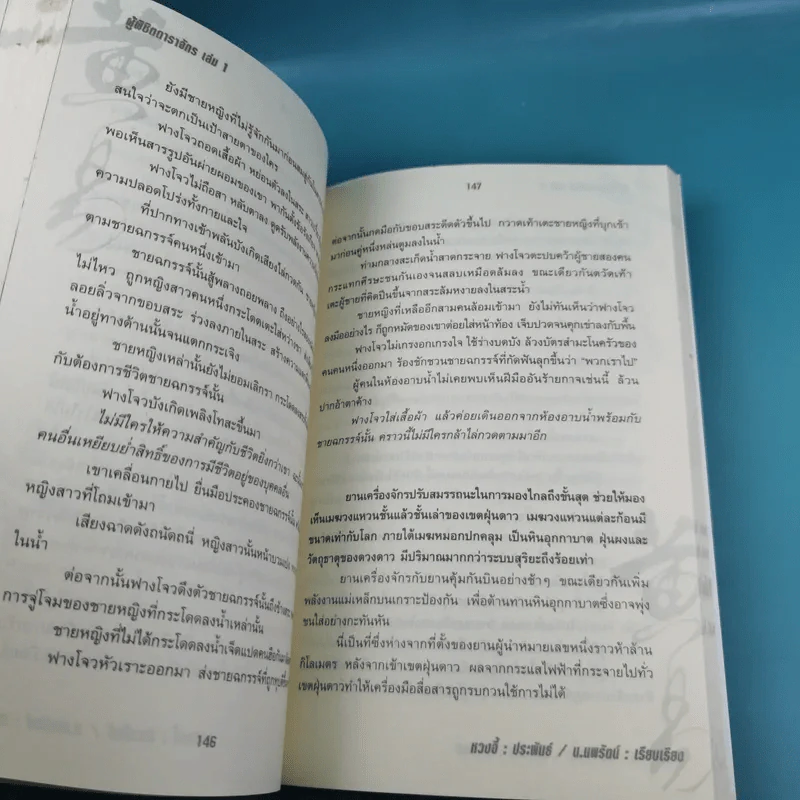 ผู้พิชิตดาราจักร เล่ม 1
ยังมีชายหญิงที่ไม่รู้จักกันมาก่อน
สนใจว่าจะตกเป็นเป้าสายตาของใคร
ฟางโจวถอดเสื้อผ้า หย่อนตัวลงในสระ
พอเห็นสารรูปอันผ่ายผอมของเขา
ฟางโจวไม่ถือสา หลับตาลง
ความปลอดโปร่งทั้งกายและใจ
ที่ปากทางเข้าพลันบังเกิดเสียงไล่กวดกัน
ตามชายฉกรรจ์คนหนึ่งเข้ามา
ชายฉกรรจ์นั้นสู้พลางถอยพลาง
ไม่ไหว ถูกหญิงสาวคนหนึ่งกระโดดเตะใส่
ลอยลิ่วจากขอบสระ ร่วงลงภายในสระ
น้ำอยู่ทางด้านนั้นจนแตกกระเจิง
ชายหญิงเหล่านั้นยังไม่ยอมเลิกรา
กับต้องการชีวิตชายฉกรรจ์นั้น
ฟางโจวบังเกิดเพลิงโทสะขึ้นมา
ไม่มีใครให้ความสำคัญกับชีวิตยิ่งกว่าเขา
คนอื่นเหยียบย่ำสิทธิ์ของการมีชีวิตอยู่ของบุคคลอื่น
เขาเคลื่อนกายไป ยื่นมือประคองชายฉกรรจ์นั้น
หญิงสาวที่โถมเข้ามา
เสียงฉาดดังถนัดถนี่ หญิงสาวนั้นหน้าบวม
ในน้ำ
ต่อจากนั้นฟางโจวดึงตัวชายฉกรรจ์นั้นถึงข้างสระ
การจู่โจมของชายหญิงที่กระโดดลงน้ำเหล่านั้น
ชายหญิงที่ไม่ได้กระโดดลงน้ำเจ็ดแปดคน
ฟางโจวหัวเราะออกมา ส่งชายฉกรรจ์ที่ถูก
146
147
ต่อจากนั้นกดมือกับขอบสระดีดตัวขึ้นไป กวาดเท้าเตะชายหญิงที่บุกเข้า
มาก่อนคู่หนึ่งหล่นตูมลงในน้ำ
ท่ามกลางสะเก็ดน้ำสาดกระจาย ฟางโจวตะปบคว้าผู้ชายสองคน
กระแทกศีรษะชนกันเองจนสลบเหมือดล้มลง ขณะเดียวกันตวัดเท้า
เตะผู้ชายที่คิดปีนขึ้นจากสระล้มหงายลงในสระน้ำ
ชายหญิงที่เหลืออีกสามคนล้อมเข้ามา ยังไม่ทันเห็นว่าฟางโจว
ลงมืออย่างไร ก็ถูกหมัดของเขาต่อยใส่หน้าท้อง เจ็บปวดจนคุกเข่าลงกับพื้น
ฟางโจวไม่เกรงอกเกรงใจ ใช้ร่างบดบัง ล้วงบัตรสำมะโนครัวของ
คนคนหนึ่งออกมา ร้องชักชวนชายฉกรรจ์ที่กัดฟันลุกขึ้นว่า “พวกเราไป”
ผู้คนในห้องอาบน้ำไม่เคยพบเห็นฝีมืออันร้ายกาจเช่นนี้ ล้วน
ปากอ้าตาค้าง
ฟางโจวใส่เสื้อผ้า แล้วค่อยเดินออกจากห้องอาบน้ำพร้อมกับ
ชายฉกรรจ์นั้น คราวนี้ไม่มีใครกล้าไล่กวดตามมาอีก
ยานเครื่องจักรปรับสมรรถนะในการมองไกลถึงขั้นสุด ช่วยให้มอง
เห็นเมฆวงแหวนชั้นแล้วชั้นเล่าของเขตฝุ่นดาว เมฆวงแหวนแต่ละก้อนมี
ขนาดเท่ากับโลก ภายใต้เมฆหมอกปกคลุม เป็นหินอุกกาบาต ฝุ่นผงและ
วัตถุธาตุของดวงดาว มีปริมาณมากกว่าระบบสุริยะถึงร้อยเท่า
ยานเครื่องจักรกับยานคุ้มกันบินอย่างช้าๆ ขณะเดียวกันเพิ่ม
พลังงานแม่เหล็กบนเกราะป้องกัน เพื่อต้านทานหินอุกกาบาตซึ่งอาจพุ่ง
ชนใส่อย่างกะทันหัน
นี่เป็นที่ซึ่งห่างจากที่ตั้งของยานผู้นำหมายเลขหนึ่งราวห้าล้าน
กิโลเมตร หลังจากเข้าเขตฝุ่นดาว ผลจากกระแสไฟฟ้าที่กระจายไปทั่ว
เขตฝุ่นดาวทำให้เครื่องมือสื่อสารถูกรบกวนใช้การไม่ได้
หวงอี้ : ประพันธ์ / น.นพรัตน์ : เรียบเรียง